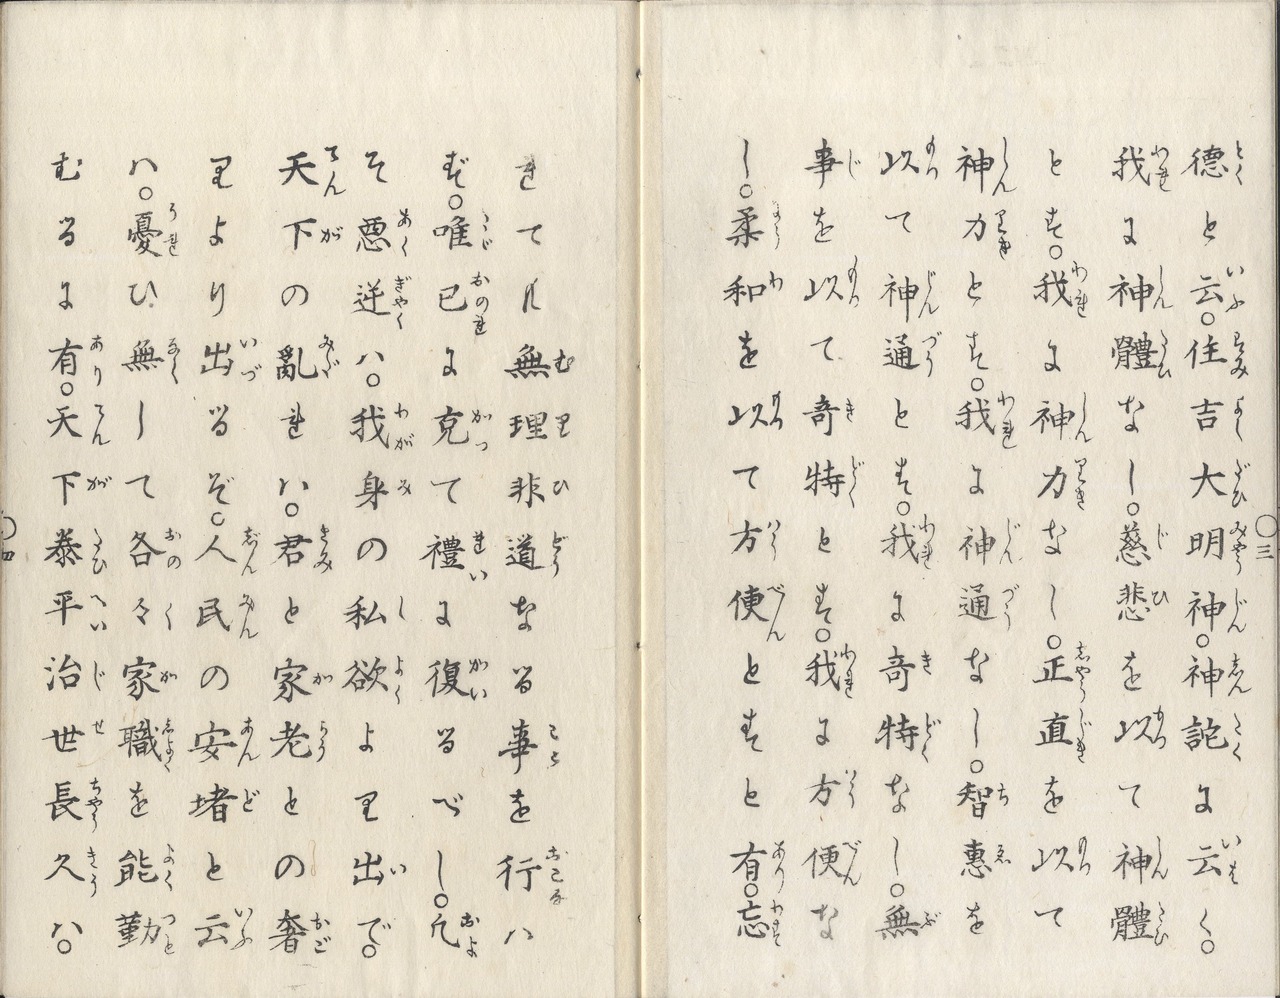 徳と云。住吉大明神。神詑に云く。
我に神體なし。慈悲を以て神體
とす。我に神力なし。正直を以て
神力とす。我に神通なし。智惠を
以て神通とす。我に奇特なし。無
事を以て奇特とす。我に方便な
し。柔和を以て方便とすと有。忘
れても無理非道なる事を行は
ず。唯己に克て禮に復るべし。凡
そ惡逆は。我身の私欲より出で。
天下の亂れは。君と家老との奢
りより出るぞ。人民の安堵と云
は。憂ひ無して各々家職を能勤
むるに有。天下泰平治世長久は。
〇三
〇四